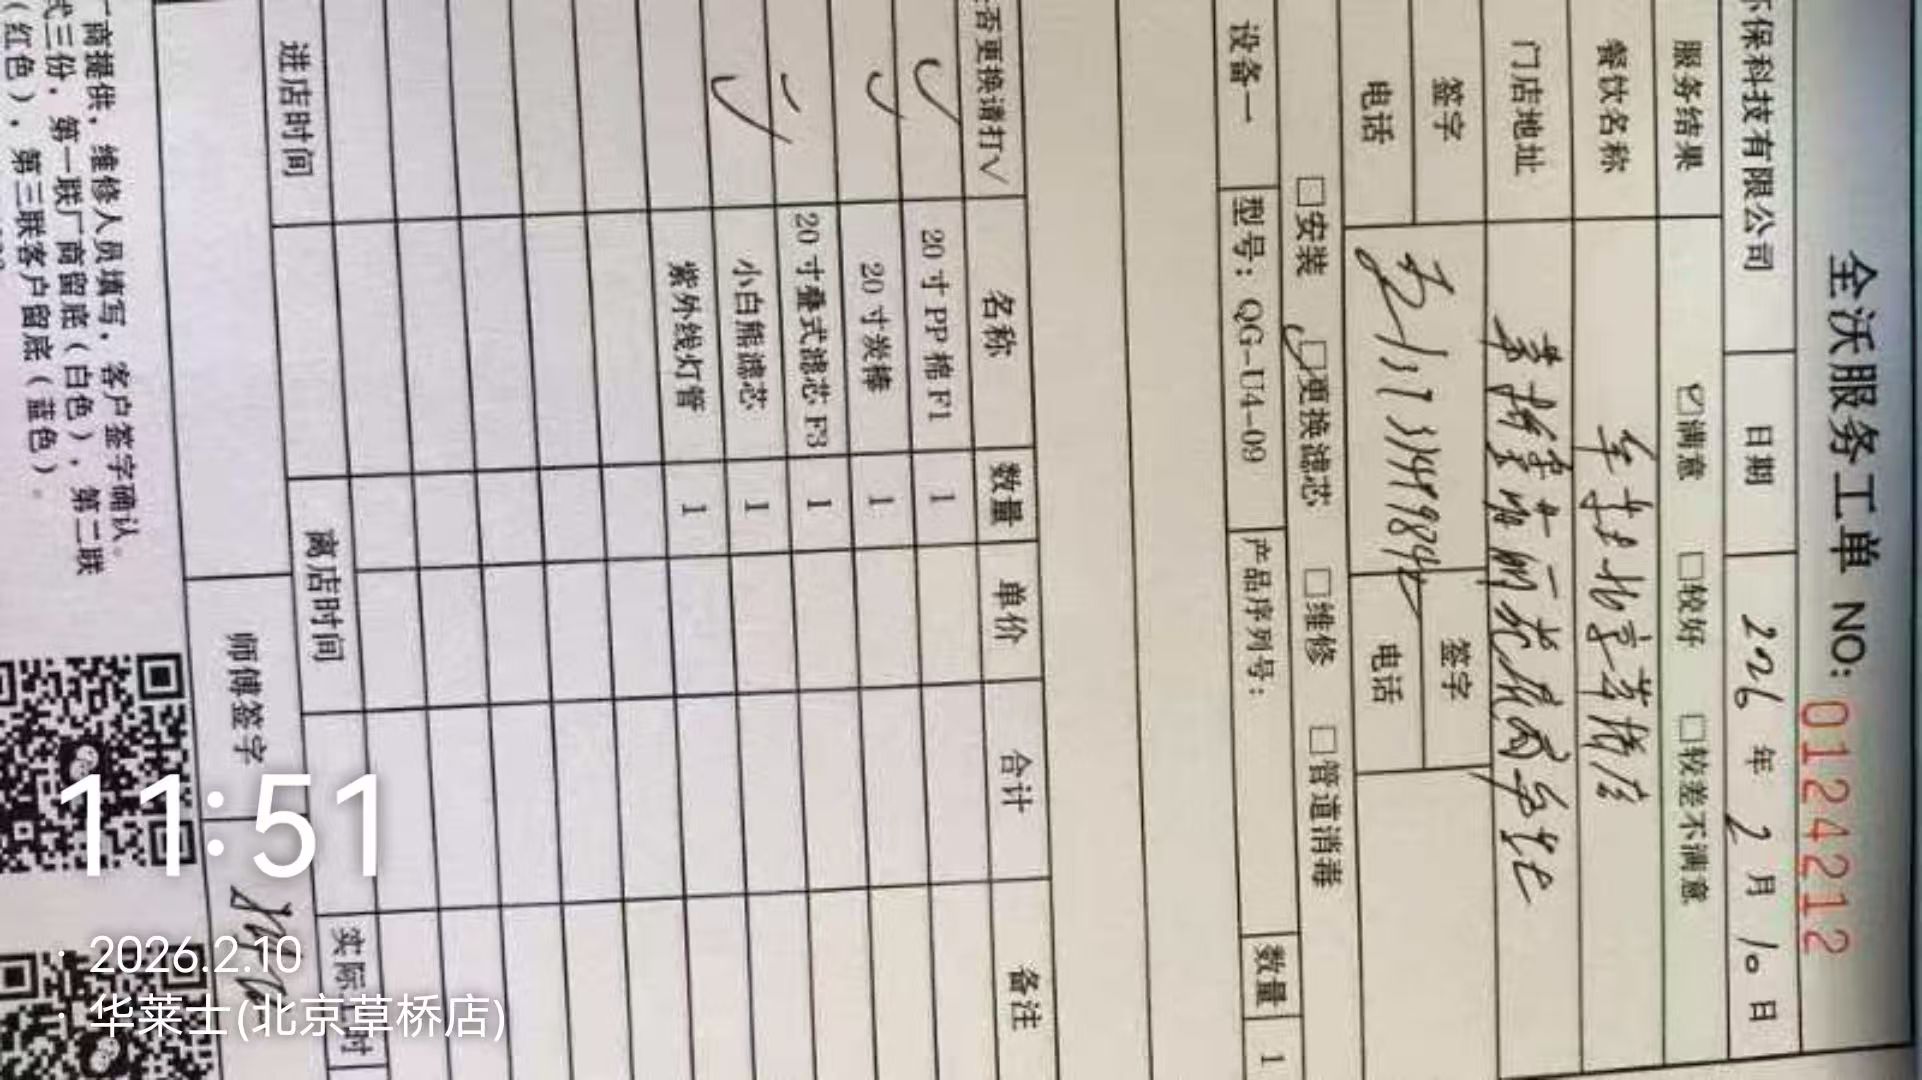 全沃服务工单 NO: 01242212
环保科技有限公司 日期 2026 年 2 月 10 日
服务结果 ☑满意 □较好 □较差不满意
餐饮名称 华莱士北京草桥店
门店地址
签字 签字
电话 电话
□安装 □更换滤芯 □维修 □管道消毒
设备一 型号：QG-U4-09 产品序列号： 数量 1
否更换请打√ 名称 数量 单价 合计 备注
✓ 20 寸 PP 棉 F1 1
✓ 20 寸炭棒 1
✓ 20 寸叠式滤芯 F3 1
✓ 小白熊滤芯 1
紫外线灯管 1
进店时间 离店时间 实际 时
师傅签字
商提供，维修人员填写，客户签字确认。
式三份，第一联厂商留底（白色），第二联
（红色），第三联客户留底（蓝色）。
11:51
2026.2.10
华莱士(北京草桥店)